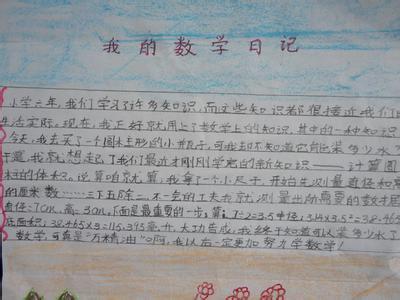 我的数学日记
小学六年,我们学习了许多知识,而这些知识都很接近我们的
生活实际。现在,我正好就用上了数学上的知识,其中的一种
今天,我去买了一个圆柱形的小瓶子,可我却不知道它能装多少水了
于是,我就想起了我们最近才刚刚学完的新知识——计算圆
柱的体积。说算咱就算,我拿了一个小尺子,开始先测量直径和高
的厘米数……三下五除二,不一会的工夫我就测量出所需要的数据
直径:7cm,高:3cm,下面是最重要的一步:算。7÷2=3.5 3.14×3.5²=38.465
底面积,38.465×3=115.395毫升,大功告成,我终于知道可以装多少水了
数学,可真是“万精油”啊,我以后一定要更加努力学数学!